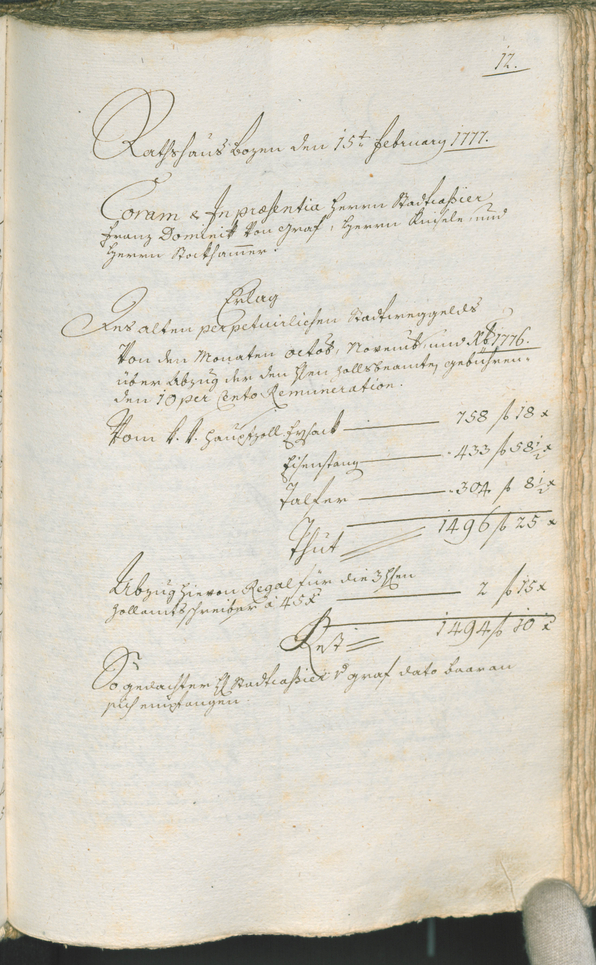 12.
Rathshaus Bozen den 15t february 1777.
Coram & In præsentia Herrn Stadtcassier
Franz Dominik von Graf, Herrn Kinsele, und
Herrn Stockhammer.
Erlag
Des alten perpetuirlichen Stadtweggelds
Von den Monaten octob, Novemb, und Xb 1776.
über Abzug der den Hen Zollsbeamten gebühren-
den 10 per Cento Remuneration.
Vom K. K. Hauptzoll Ersack 758 f 18 x
Eisenstang 433 f 58 1/2 x
Talfer 304 f 8 1/2 x
Thut 1496 f 25 x
Abzug hievon Regal für die 3 Hen
Zollamtschreiber à 45 x 2 f 15 x
Rest 1494 f 10 x
So gedachter H Stadtcassier v graf dato baar an
sich empfangen.